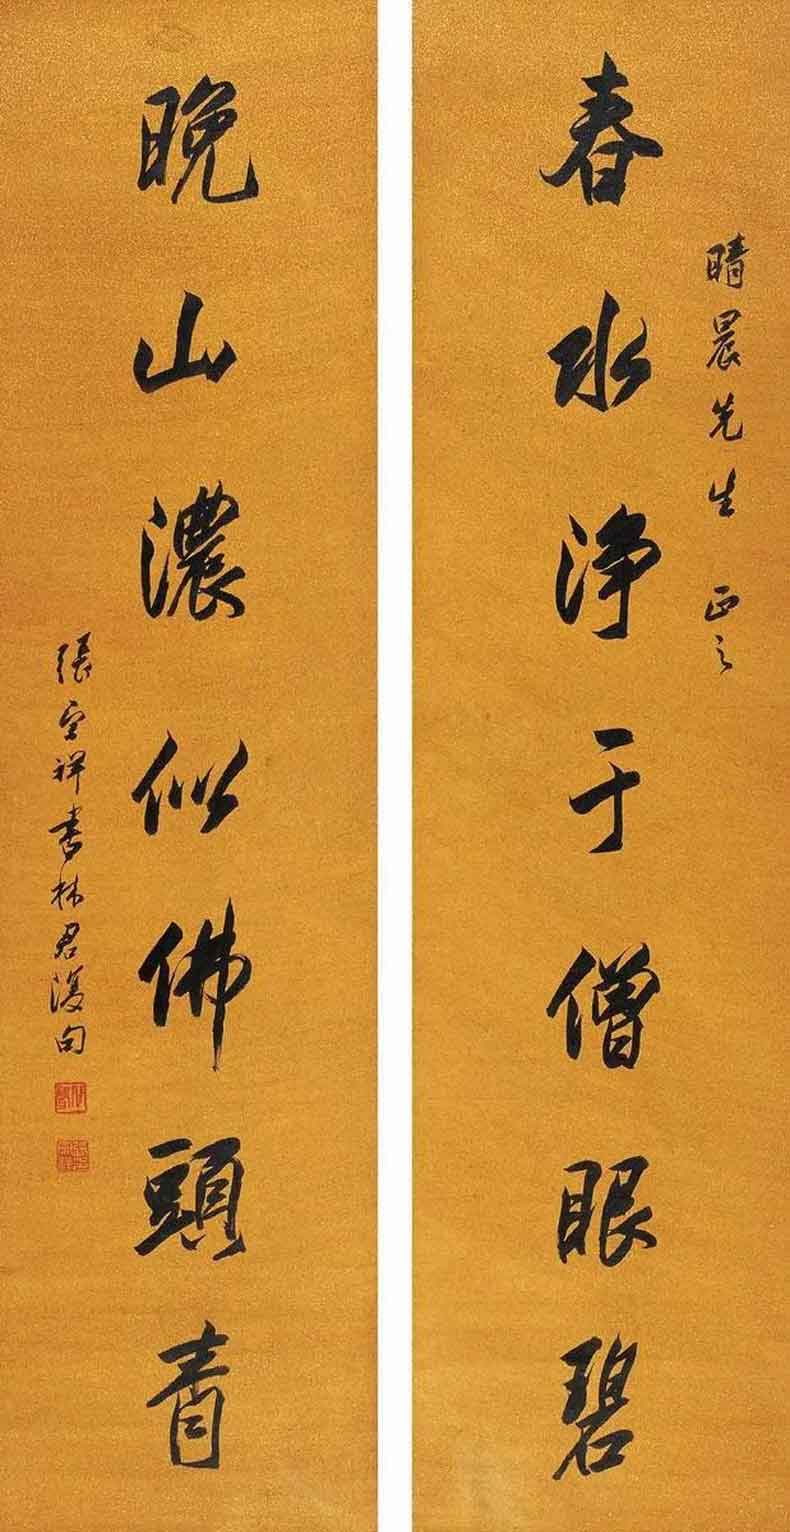 晴晨先生 正之
春水净于僧眼碧
晚山濃似佛頭青
張宗祥書林君復句